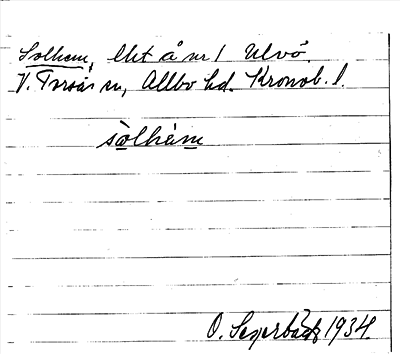 Solhem, lht å nr 1 Ulvö.
V. Torsås sn, Allbo hd. Kronob. l.
sòlhèm
O. Segerbäck 1934.